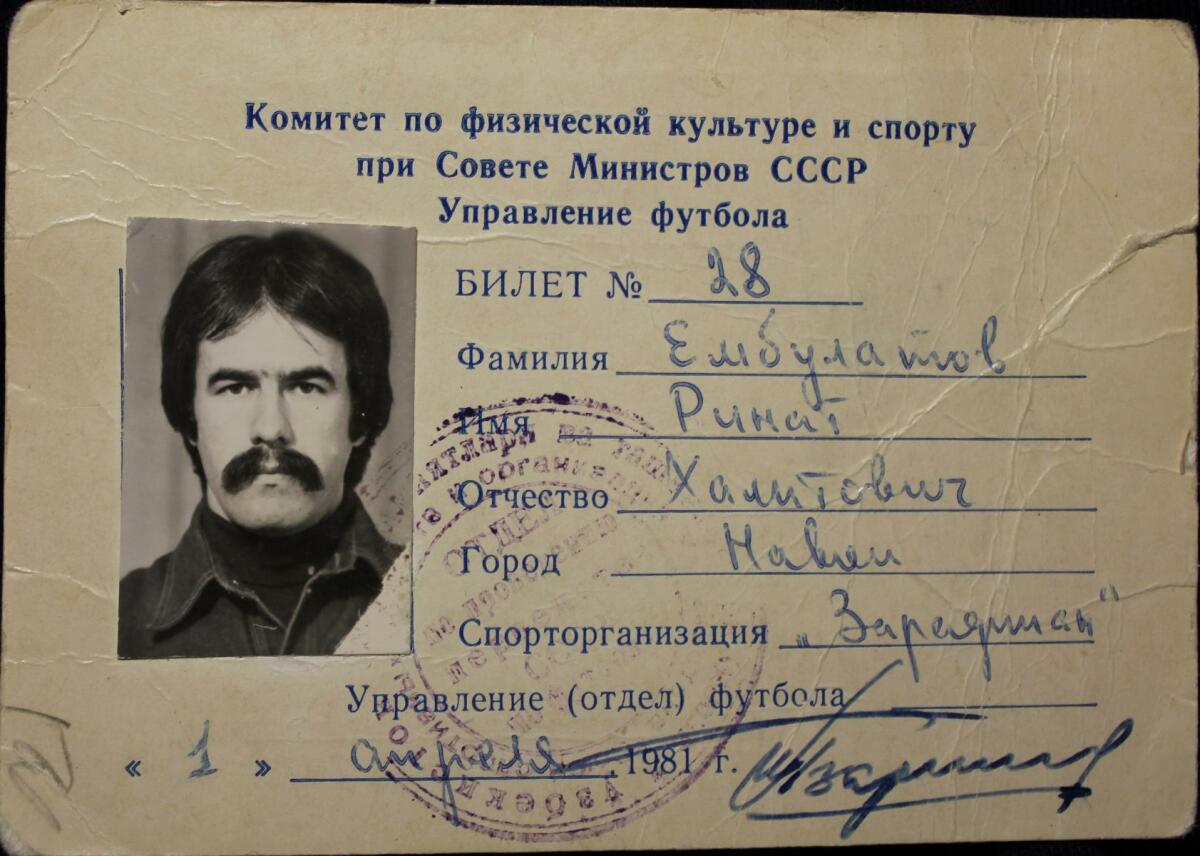 Комитет по физической культуре и спорту
при Совете Министров СССР
Управление футбола
БИЛЕТ № 28
Фамилия Ембулатов
Имя Ринат
Отчество Халитович
Город Навои
Спорторганизация „Зарафшан"
Управление (отдел) футбола
« 1 » апреля 1981 г.
ОТДЕЛ